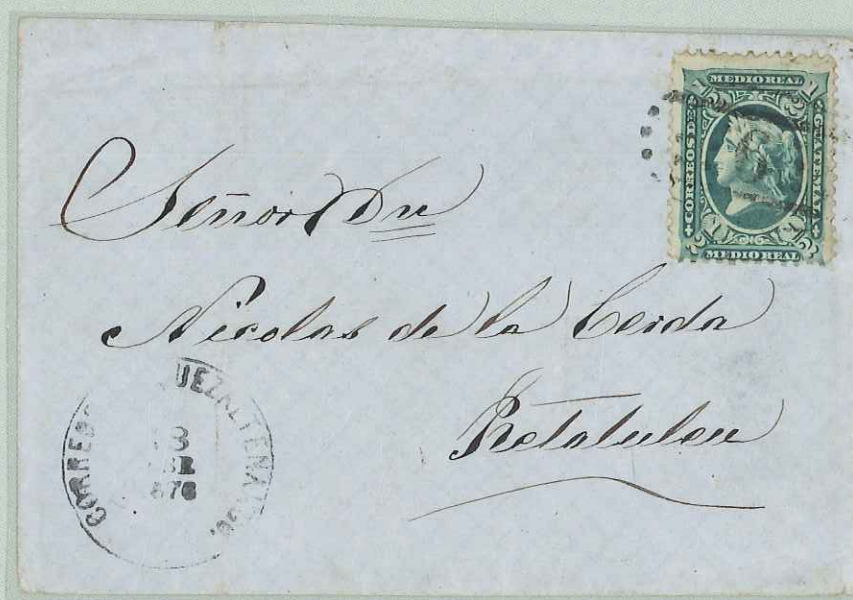 MEDIO REAL
CORREOS DE GUATEMALA
MEDIO REAL
Señor Dn
Nicolas de la Cerda
Retaluleu
CORREOS UEZALTENANGO.
3
BR
876